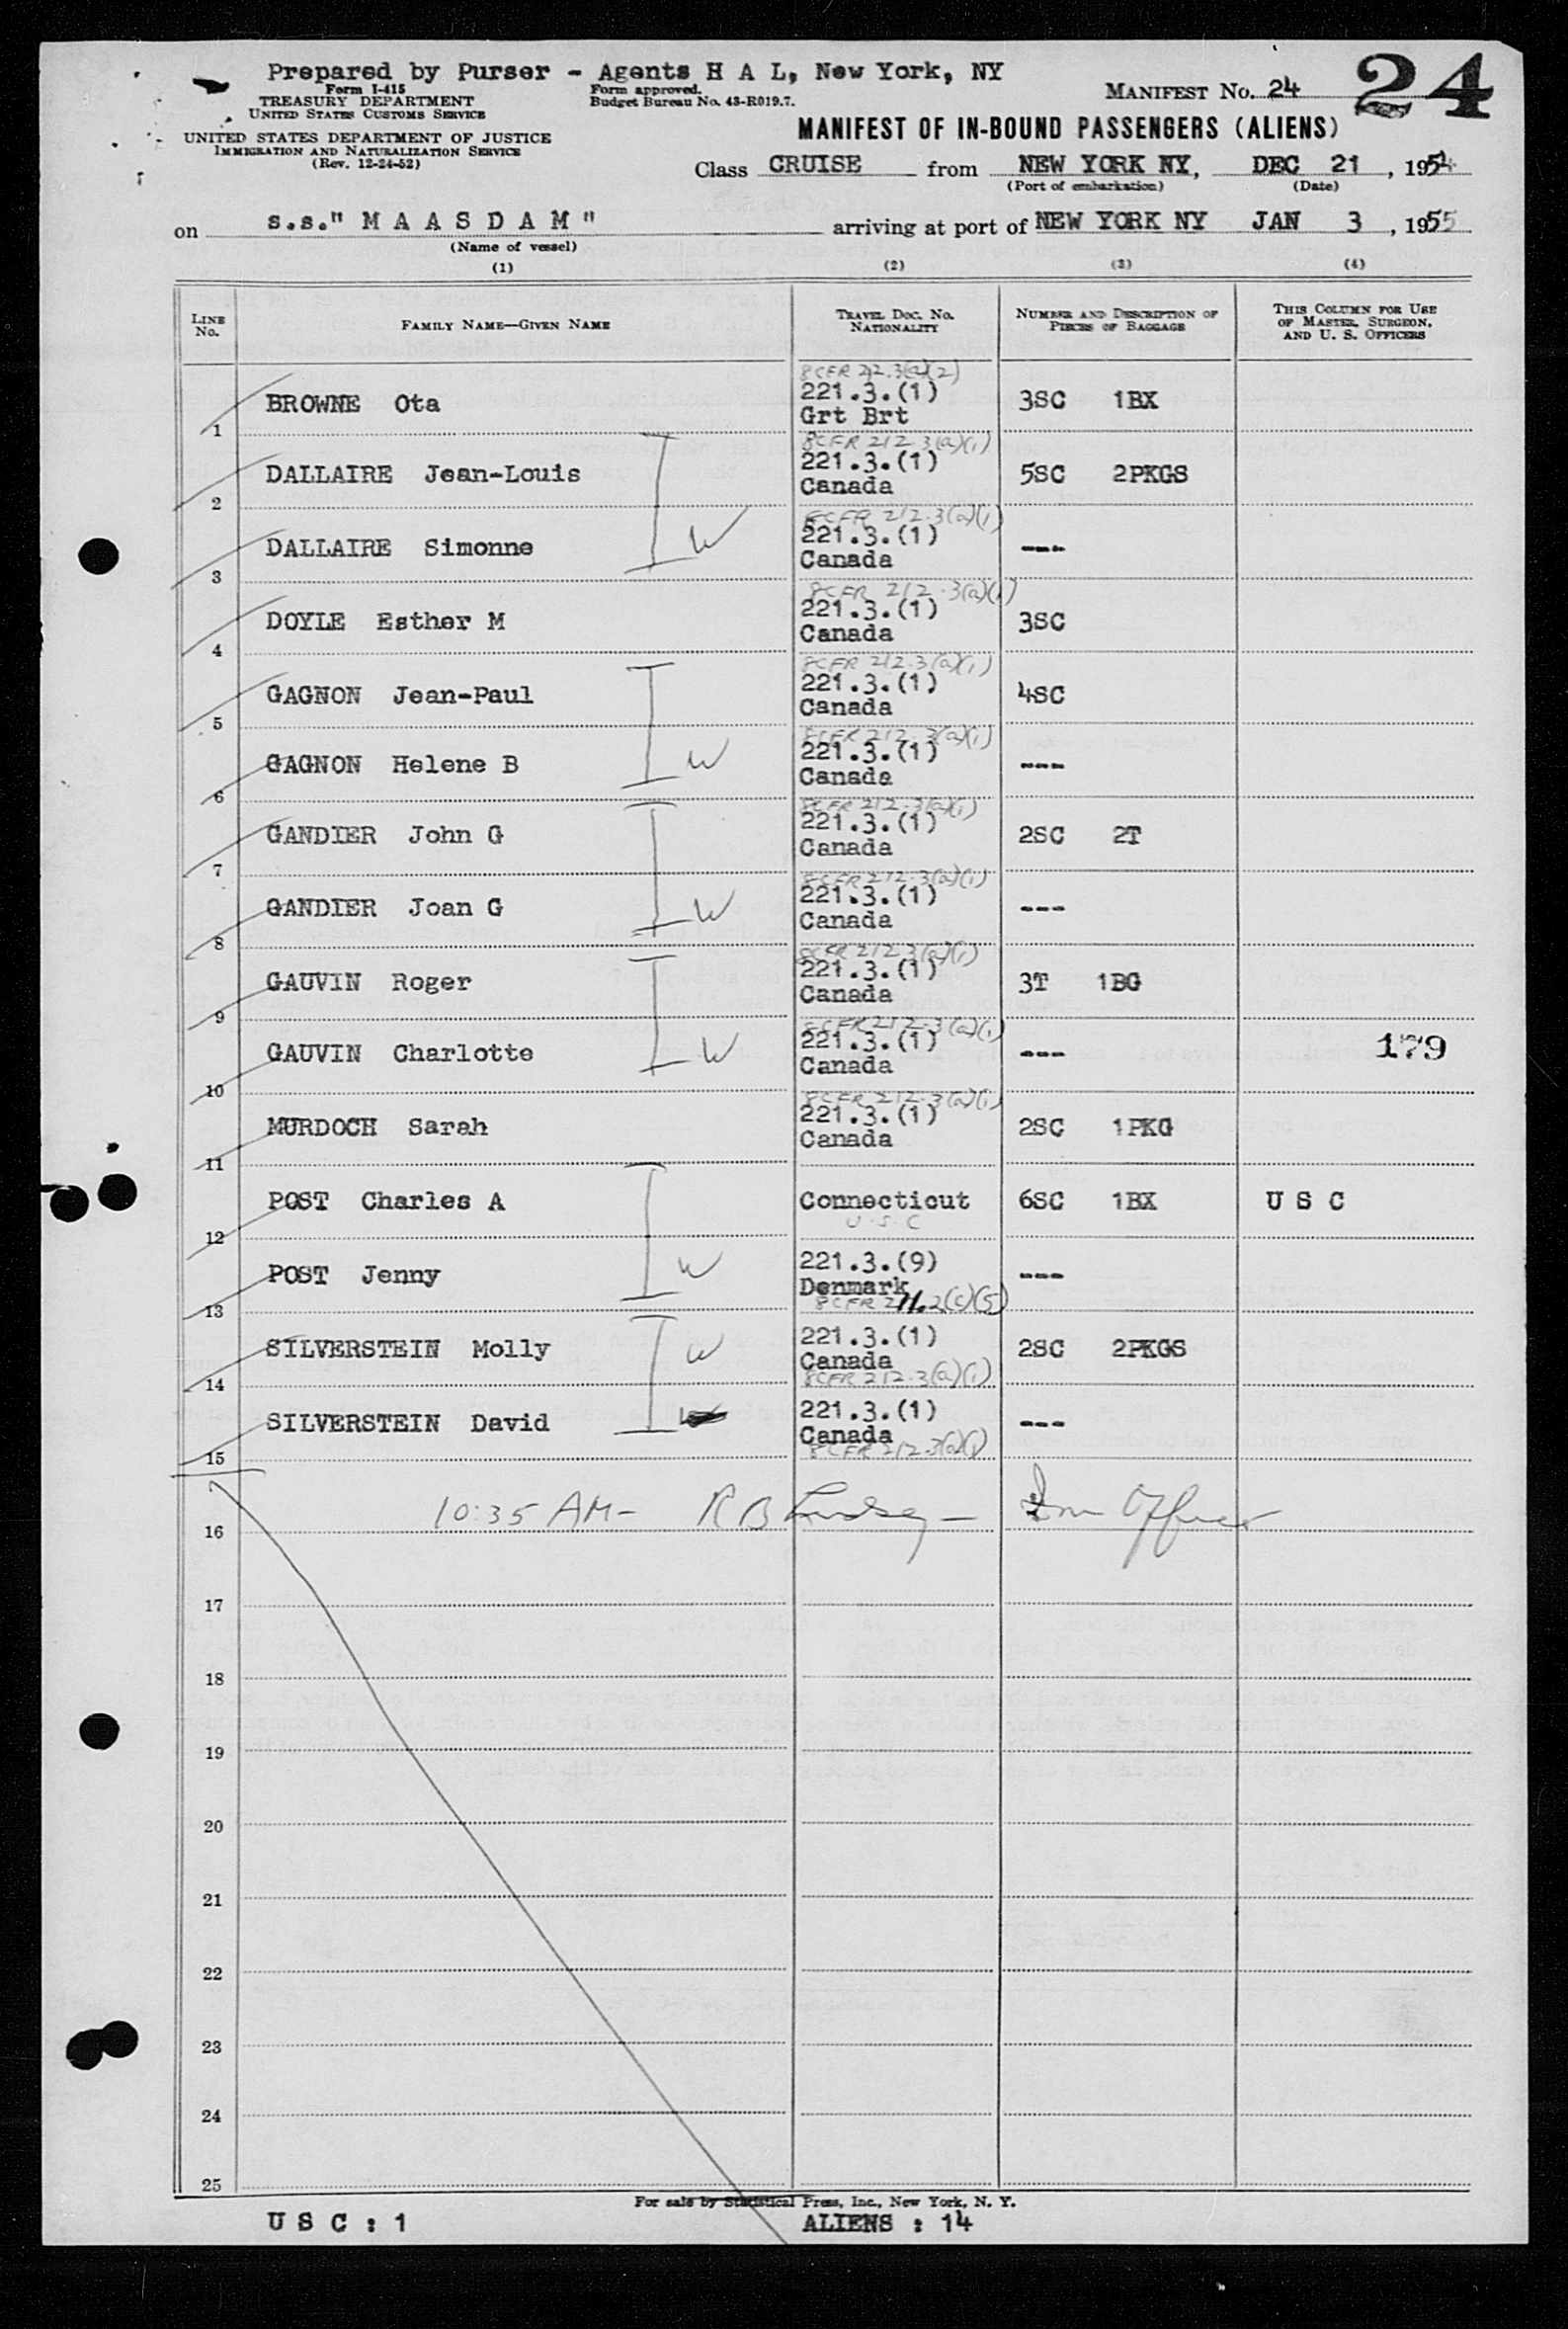 Prepared by Purser - Agents H A L, New York, NY
Form I-415
TREASURY DEPARTMENT
UNITED STATES CUSTOMS SERVICE
UNITED STATES DEPARTMENT OF JUSTICE
IMMIGRATION AND NATURALIZATION SERVICE
(Rev. 12-24-52)
Form approved.
Budget Bureau No. 43-R019.7.
MANIFEST NO. 24
24
MANIFEST OF IN-BOUND PASSENGERS (ALIENS)
Class CRUISE from NEW YORK NY, DEC 21, 1954
(Port of embarkation) (Date)
on s.s." M A A S D A M " arriving at port of NEW YORK NY JAN 3, 1955
(Name of vessel)
(1) (2) (3) (4)
LINE No. FAMILY NAME—GIVEN NAME TRAVEL DOC. NO. NATIONALITY NUMBER AND DESCRIPTION OF PIECES OF BAGGAGE THIS COLUMN FOR USE OF MASTER, SURGEON, AND U. S. OFFICERS
8CFR 212.3(a)(2)
1 BROWNE Ota 221.3.(1) Grt Brt 3SC 1BX
8CFR 212.3(a)(1)
2 DALLAIRE Jean-Louis 221.3.(1) Canada 5SC 2PKGS
8CFR 212.3(a)(1)
3 DALLAIRE Simonne W 221.3.(1) Canada ---
8CFR 212.3(a)(1)
4 DOYLE Esther M 221.3.(1) Canada 3SC
8CFR 212.3(a)(1)
5 GAGNON Jean-Paul 221.3.(1) Canada 4SC
8CFR 212.3(a)(1)
6 GAGNON Helene B W 221.3.(1) Canada ---
8CFR 212.3(a)(1)
7 GANDIER John G 221.3.(1) Canada 2SC 2T
8CFR 212.3(a)(1)
8 GANDIER Joan G W 221.3.(1) Canada ---
8CFR 212.3(a)(1)
9 GAUVIN Roger 221.3.(1) Canada 3T 1BG
8CFR 212.3(a)(1)
10 GAUVIN Charlotte W 221.3.(1) Canada --- 179
8CFR 212.3(a)(1)
11 MURDOCH Sarah 221.3.(1) Canada 2SC 1PKG
12 POST Charles A Connecticut 6SC 1BX U S C
U.S.C
13 POST Jenny W 221.3.(9) Denmark ---
8CFR 211.2(c)(5)
14 SILVERSTEIN Molly W 221.3.(1) Canada 2SC 2PKGS
8CFR 212.3(a)(1)
15 SILVERSTEIN David 221.3.(1) Canada ---
8CFR 212.3(a)(1)
16 10:35 AM- R B Lindsey - Imm Officer
17
18
19
20
21
22
23
24
25
For sale by Statistical Press, Inc., New York, N. Y.
U S C : 1 ALIENS : 14